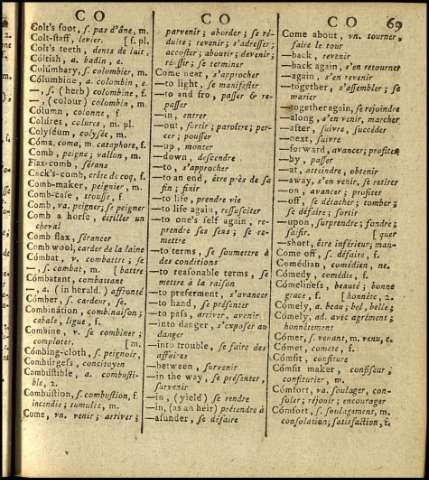 C O
C O
C O 69
Colt's foot, s. pas d'âne, m.
Colt-staff, levier. [f. pl.
Colt's teeth, dents de lait,
Cóltish, a. badin, e.
Cólumbary, s. colombier, m.
Cólumbine, a. colombin, e.
—, s. (herb) colombine, f.
—, (colour) colombin, m.
Cólumn, colonne, f.
Colúres, colures, m. pl.
Colyséum, colysée, m.
Cóma, coma, m. cataphore, f.
Comb, peigne; vallon, m.
Flax-comb, sérans
Cock's-comb, crête de coq, f.
Comb-maker, peignier, m.
Comb-case, trousse, f.
Comb, va. peigner; se peigner
Comb a horse, étriller un
cheval
Comb flax, sérancer
Comb wool, carder de la laine
Cómbat, v. combattre; se
—, s. combat, m. [battre
Cómbatant, combattant
—, a. (in herald.) affronté
Cómber, s. cardeur, se.
Combinátion, combinaison;
cabale, ligue, f.
Combine, v. se combiner;
comploter, [m.
Cómbing-cloth, s. peignoir,
Combúrgess, concitoyen
Combústible, a. combusti-
ble, 2.
Combústion, s. combustion, f.
incendie; tumulte, m.
Come, vn. venir; arriver;
parvenir; aborder; se ré-
duire; revenir; s'adresser;
accoster; aboutir; devenir;
réussir; se terminer
Come near, s'approcher
—to light, se manifester
—to and fro, passer & re-
passer
—in, entrer
—out, sortir; paroître; per-
cer; pousser
—up, monter
—down, descendre
—to, s'approcher
—to an end, être près de sa
fin; finir
—to life, prendre vie
—to life again, ressusciter
—to one's self again, re-
prendre ses sens; se re-
mettre
—to terms, se soumettre à
des conditions
—to reasonable terms, se
mettre à la raison
—to preferment, s'avancer
—to hand, se présenter
—to pass, arriver, avenir
—into danger, s'exposer au
danger
—into trouble, se faire des
affaires
—between, survenir
—in the way, se présenter,
survenir
—in, (yield) se rendre
—in, (as an heir) prétendre à
—asunder, se défaire
Come about, vn. tourner,
faire le tour
—back, revenir
—back again, s'en retourner
—again, s'en revenir
—together, s'assembler; se
marier
—together again, se rejoindre
—along, s'en venir, marcher
—after, suivre, succéder
—next, suivre
—forward, avancer; profiter
—by, passer
—at, atteindre, obtenir
—away, s'en venir, se retirer
—on, avancer; profiter
—off, se détacher; tomber;
se défaire; sortir
—upon, surprendre; fondre;
saisir. [quer
—short, être inférieur; man-
Come off, s. défaite, f.
Comédian, comédien, ne.
Cómedy, comédie, f.
Cómeliness, beauté; bonne
grace, f. [honnête, 2.
Cómely, a. beau; bel, belle;
Cómely, ad. avec agrément;
honnêtement
Cómer, s. venant, m. venu, e.
Cómet, comete, f.
Cómfit, confiture
Cómfit maker, confiseur,
confiturier, m.
Cómfort, va. soulager, con-
soler; réjouir; encourager
Cómfort, s. soulagement, m.
consolation; satisfaction, f.